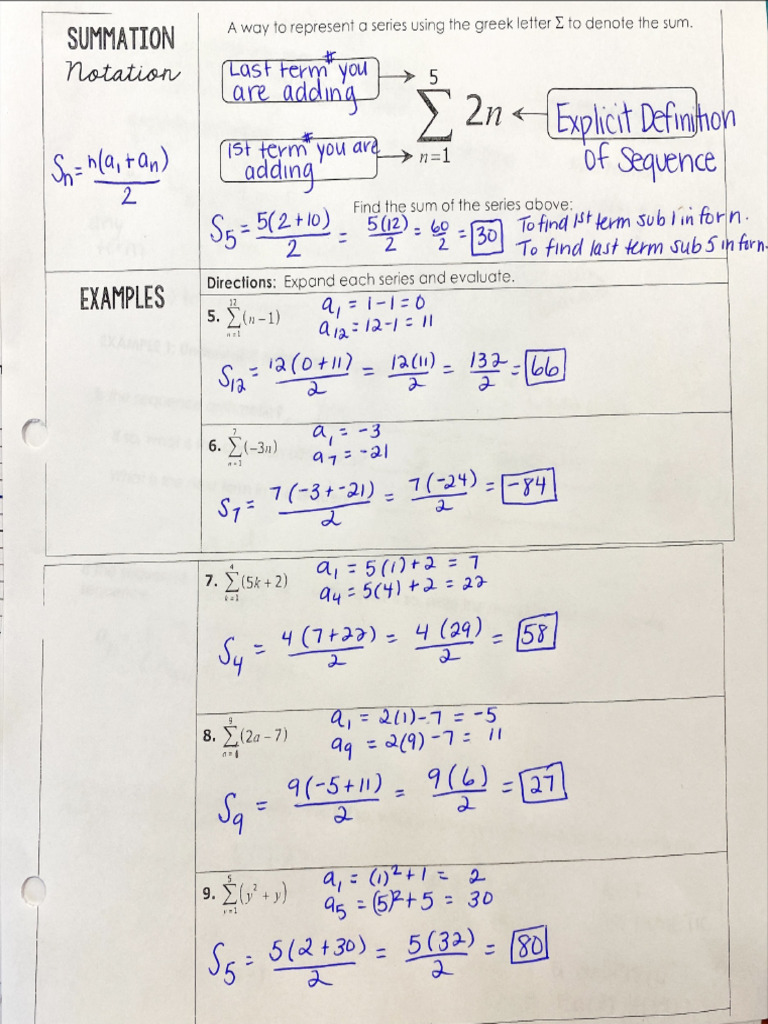 SUMMATION
Notation
A way to represent a series using the greek letter Σ to denote the sum.
Last term # you are adding → 5
Σ 2n ← Explicit Definition of Sequence
1st term # you are adding → n=1
Sn = n(a₁ + an)/2
Find the sum of the series above:
S₅ = 5(2+10)/2 = 5(12)/2 = 60/2 = 30
To find 1st term sub 1 in for n.
To find last term sub 5 in for n.
EXAMPLES
Directions: Expand each series and evaluate.
5. 12 Σ n=1 (n−1)
a₁ = 1−1 = 0
a₁₂ = 12−1 = 11
S₁₂ = 12(0+11)/2 = 12(11)/2 = 132/2 = 66
6. 7 Σ n=1 (−3n)
a₁ = −3
a₇ = −21
S₇ = 7(−3+−21)/2 = 7(−24)/2 = −84
7. 4 Σ k=1 (5k+2)
a₁ = 5(1)+2 = 7
a₄ = 5(4)+2 = 22
S₄ = 4(7+22)/2 = 4(29)/2 = 58
8. 9 Σ (2a−7)
a₁ = 2(1)−7 = −5
a₉ = 2(9)−7 = 11
S₉ = 9(−5+11)/2 = 9(6)/2 = 27
9. 5 Σ y=1 (y²+y)
a₁ = (1)²+1 = 2
a₅ = (5)²+5 = 30
S₅ = 5(2+30)/2 = 5(32)/2 = 80